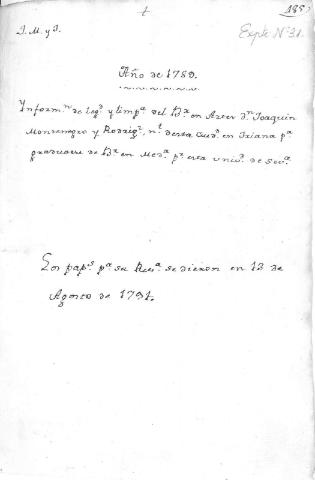 † 185
J. M. y J. Expte Nº 31.
Año de 1789.
Informn. de legd. y limpa. del Br. en Artes Dn. Joaquin
Montenegro y Rodrigz. nl. de esta Ciud. en Triana pa.
graduarse de Br. en Meda. pr. esta Univd. de Seva.
Los paps. pa. su Reva. se dieron en 12 de
Agosto de 1791.